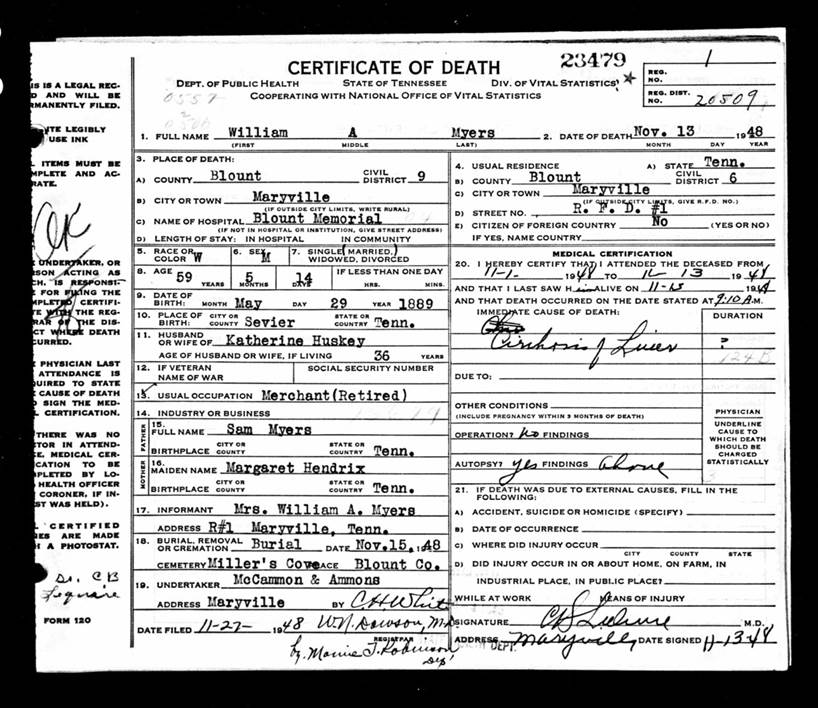 23479
1
CERTIFICATE OF DEATH
REG. NO.
DEPT. OF PUBLIC HEALTH STATE OF TENNESSEE DIV. OF VITAL STATISTICS
COOPERATING WITH NATIONAL OFFICE OF VITAL STATISTICS
REG. DIST. NO. 20509
1. FULL NAME William A Myers 2. DATE OF DEATH Nov. 13 1948
(FIRST) MIDDLE LAST) MONTH DAY YEAR
3. PLACE OF DEATH:
A) COUNTY Blount CIVIL DISTRICT 9
B) CITY OR TOWN Maryville
(IF OUTSIDE CITY LIMITS, WRITE RURAL)
C) NAME OF HOSPITAL Blount Memorial
(IF NOT IN HOSPITAL OR INSTITUTION, GIVE STREET ADDRESS)
D) LENGTH OF STAY: IN HOSPITAL IN COMMUNITY
4. USUAL RESIDENCE A) STATE Tenn.
B) COUNTY Blount CIVIL DISTRICT 6
C) CITY OR TOWN Maryville
(IF OUTSIDE CITY LIMITS, GIVE R.F.D. NO.)
D) STREET NO. R. F. D. #1
E) CITIZEN OF FOREIGN COUNTRY No (YES OR NO)
IF YES, NAME COUNTRY
5. RACE OR COLOR W 6. SEX M 7. SINGLE (MARRIED,) WIDOWED, DIVORCED
8. AGE 59 5 14 IF LESS THAN ONE DAY
YEARS MONTHS DAYS HRS. MINS.
9. DATE OF BIRTH: MONTH May DAY 29 YEAR 1889
10. PLACE OF BIRTH: CITY OR COUNTY Sevier STATE OR COUNTRY Tenn.
11. HUSBAND OR WIFE OF Katherine Huskey
AGE OF HUSBAND OR WIFE, IF LIVING 36 YEARS
12. IF VETERAN NAME OF WAR SOCIAL SECURITY NUMBER
13. USUAL OCCUPATION Merchant(Retired)
14. INDUSTRY OR BUSINESS
FATHER
15. FULL NAME Sam Myers
BIRTHPLACE CITY OR COUNTY STATE OR COUNTRY Tenn.
MOTHER
16. MAIDEN NAME Margaret Hendrix
BIRTHPLACE CITY OR COUNTY STATE OR COUNTRY Tenn.
17. INFORMANT Mrs. William A. Myers
ADDRESS R#1 Maryville, Tenn.
18. BURIAL, REMOVAL OR CREMATION Burial DATE Nov.15, 1948
CEMETERY Miller's Cove PLACE Blount Co.
19. UNDERTAKER McCammon & Ammons
ADDRESS Maryville BY C H White
DATE FILED 11-27- 1948 W.N. Dawson, M.D.
REGISTRAR
by, Mamie T. Robinson
Dep.
MEDICAL CERTIFICATION
20. I HEREBY CERTIFY THAT I ATTENDED THE DECEASED FROM
11-1- 1948 TO 11 13 1948
AND THAT I LAST SAW H im ALIVE ON 11-13 1948
AND THAT DEATH OCCURRED ON THE DATE STATED AT 9:10 A.M.
IMMEDIATE CAUSE OF DEATH: DURATION
Cirrhosis of Liver ?
124B
DUE TO:
OTHER CONDITIONS
(INCLUDE PREGNANCY WITHIN 3 MONTHS OF DEATH)
OPERATION? No FINDINGS
AUTOPSY? yes FINDINGS Above
PHYSICIAN
UNDERLINE CAUSE TO WHICH DEATH SHOULD BE CHARGED STATISTICALLY
21. IF DEATH WAS DUE TO EXTERNAL CAUSES, FILL IN THE FOLLOWING:
A) ACCIDENT, SUICIDE OR HOMICIDE (SPECIFY)
B) DATE OF OCCURRENCE
C) WHERE DID INJURY OCCUR
CITY COUNTY STATE
D) DID INJURY OCCUR IN OR ABOUT HOME, ON FARM, IN
INDUSTRIAL PLACE, IN PUBLIC PLACE?
WHILE AT WORK MEANS OF INJURY
SIGNATURE M.D.
ADDRESS Maryville DATE SIGNED 11-13-48
IS IS A LEGAL REC-
D AND WILL BE
RMANENTLY FILED.
ITE LEGIBLY
USE INK
L ITEMS MUST BE
MPLETE AND AC-
RATE.
OK
E UNDERTAKER, OR
RSON ACTING AS
CH, IS RESPONSI-
E FOR FILING THE
MPLETED CERTIFI-
TE WITH THE REG-
RAR OF THE DIS-
CT WHERE DEATH
CURRED.
E PHYSICIAN LAST
ATTENDANCE IS
QUIRED TO STATE
E CAUSE OF DEATH
D SIGN THE MED-
L CERTIFICATION.
THERE WAS NO
CTOR IN ATTEND-
CE, MEDICAL CER-
ICATION TO BE
MPLETED BY LO-
HEALTH OFFICER
CORONER, IF IN-
ST WAS HELD).
L CERTIFIED
IES ARE MADE
H A PHOTOSTAT.
Dr. CB
Lequire
FORM 120